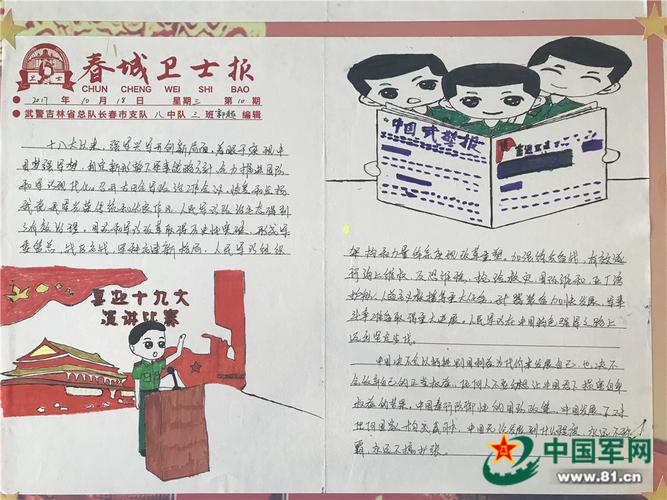 卫士
春城卫士报
CHUN CHENG WEI SHI BAO
2017 年 10 月 18 日 星期三 第 10 期
武警吉林省总队长春市支队 八 中队 三 班 编辑
十八大以来,强军兴军开创新局面,着眼于实现中
国梦强军梦,制定新形势下军事战略方针,全力推进国防
和军队现代化。召开古田全军政治工作会议,恢复和发扬
我党我军光荣传统和优良作风,人民军队政治生态得到
了有效治理。国防和军队改革取得历史性突破,形成军
委管总、战区主战、军种主建新格局,人民军队组织
喜迎十九大
演讲比赛
中国武警报
喜迎
架构和力量体系实现重塑。加强练兵备战,有效遂
行海上维权、反恐维稳、抢险救灾、国际维和、亚丁湾
护航、人道主义救援等重大任务,武器装备加快发展,军事
斗争准备取得重大进展。人民军队在中国特色强军之路上
迈出坚定步伐。
中国决不会以牺牲别国利益为代价来发展自己,也决不
会放弃自己的正当权益,任何人不要幻想让中国吞下损害自身
权益的苦果。中国奉行防御性的国防政策。中国发展不对
任何国家构成威胁。中国无论发展到什么程度,永远不称
霸,永远不搞扩张。
中国军网
www.81.cn